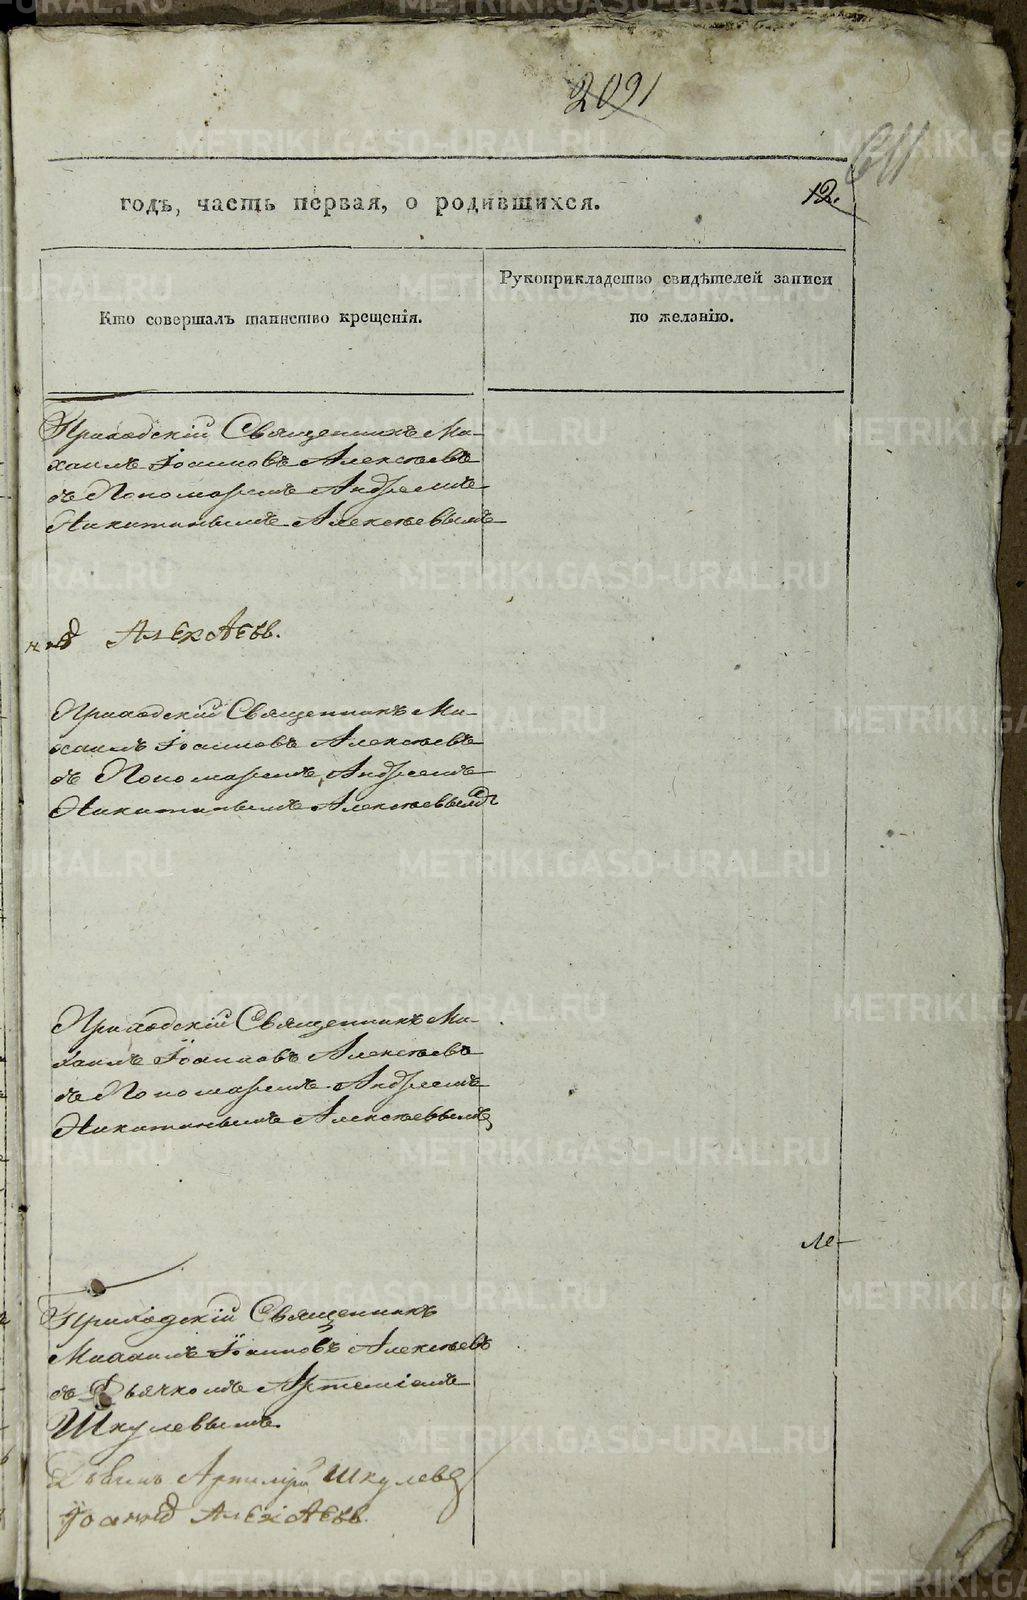 2091
611
12.
годъ, часть первая, о родившихся.
Кто совершалъ таинство крещенія.
Рукоприкладство свидѣтелей записи
по желанію.
Приходскій Священникъ Ми-
хаилъ Іоанновъ Алексѣевъ
съ Пономаремъ Андреемъ
Никитинымъ Алексѣевымъ
Алексѣевъ.
Приходскій Священникъ Ми-
хаилъ Іоанновъ Алексѣевъ
съ Пономаремъ Андреемъ
Никитинымъ Алексѣевымъ
Приходскій Священникъ Ми-
хаилъ Іоанновъ Алексѣевъ
съ Пономаремъ Андреемъ
Никитинымъ Алексѣевымъ
ле-
Приходскій Священникъ
Михаилъ Іоанновъ Алексѣевъ
съ Дьячкомъ Артеміемъ
Шкулевымъ
Шкулевъ
Іоаннъ Алексѣевъ.
METRIKI.GASO-URAL.RU